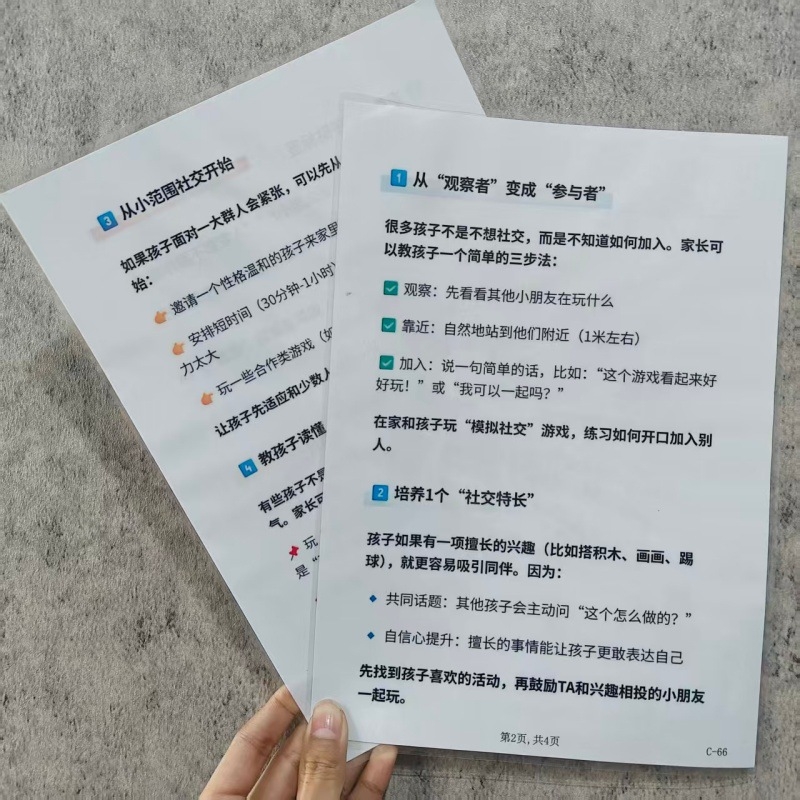 3 从小范围社交开始
如果孩子面对一大群人会紧张，可以先从
始：
邀请一个性格温和的孩子来家里
安排短时间（30分钟-1小时）
力太大
玩一些合作类游戏（如
让孩子先适应和少数人
4 教孩子读懂
有些孩子不是
气。家长可
玩
是“
1 从“观察者”变成“参与者”
很多孩子不是不想社交，而是不知道如何加入。家长可
以教孩子一个简单的三步法：
观察：先看看其他小朋友在玩什么
靠近：自然地站到他们附近（1米左右）
加入：说一句简单的话，比如：“这个游戏看起来好
好玩！”或“我可以一起吗？”
在家和孩子玩“模拟社交”游戏，练习如何开口加入别
人。
2 培养1个“社交特长”
孩子如果有一项擅长的兴趣（比如搭积木、画画、踢
球），就更容易吸引同伴。因为：
共同话题：其他孩子会主动问“这个怎么做的？”
自信心提升：擅长的事情能让孩子更敢表达自己
先找到孩子喜欢的活动，再鼓励TA和兴趣相投的小朋友
一起玩。
第2页，共4页
C-66